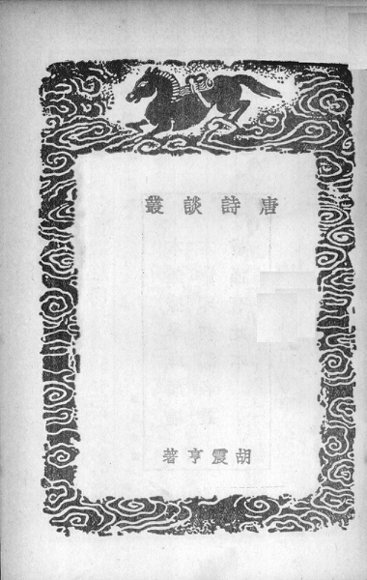 唐詩談叢
胡震亨著